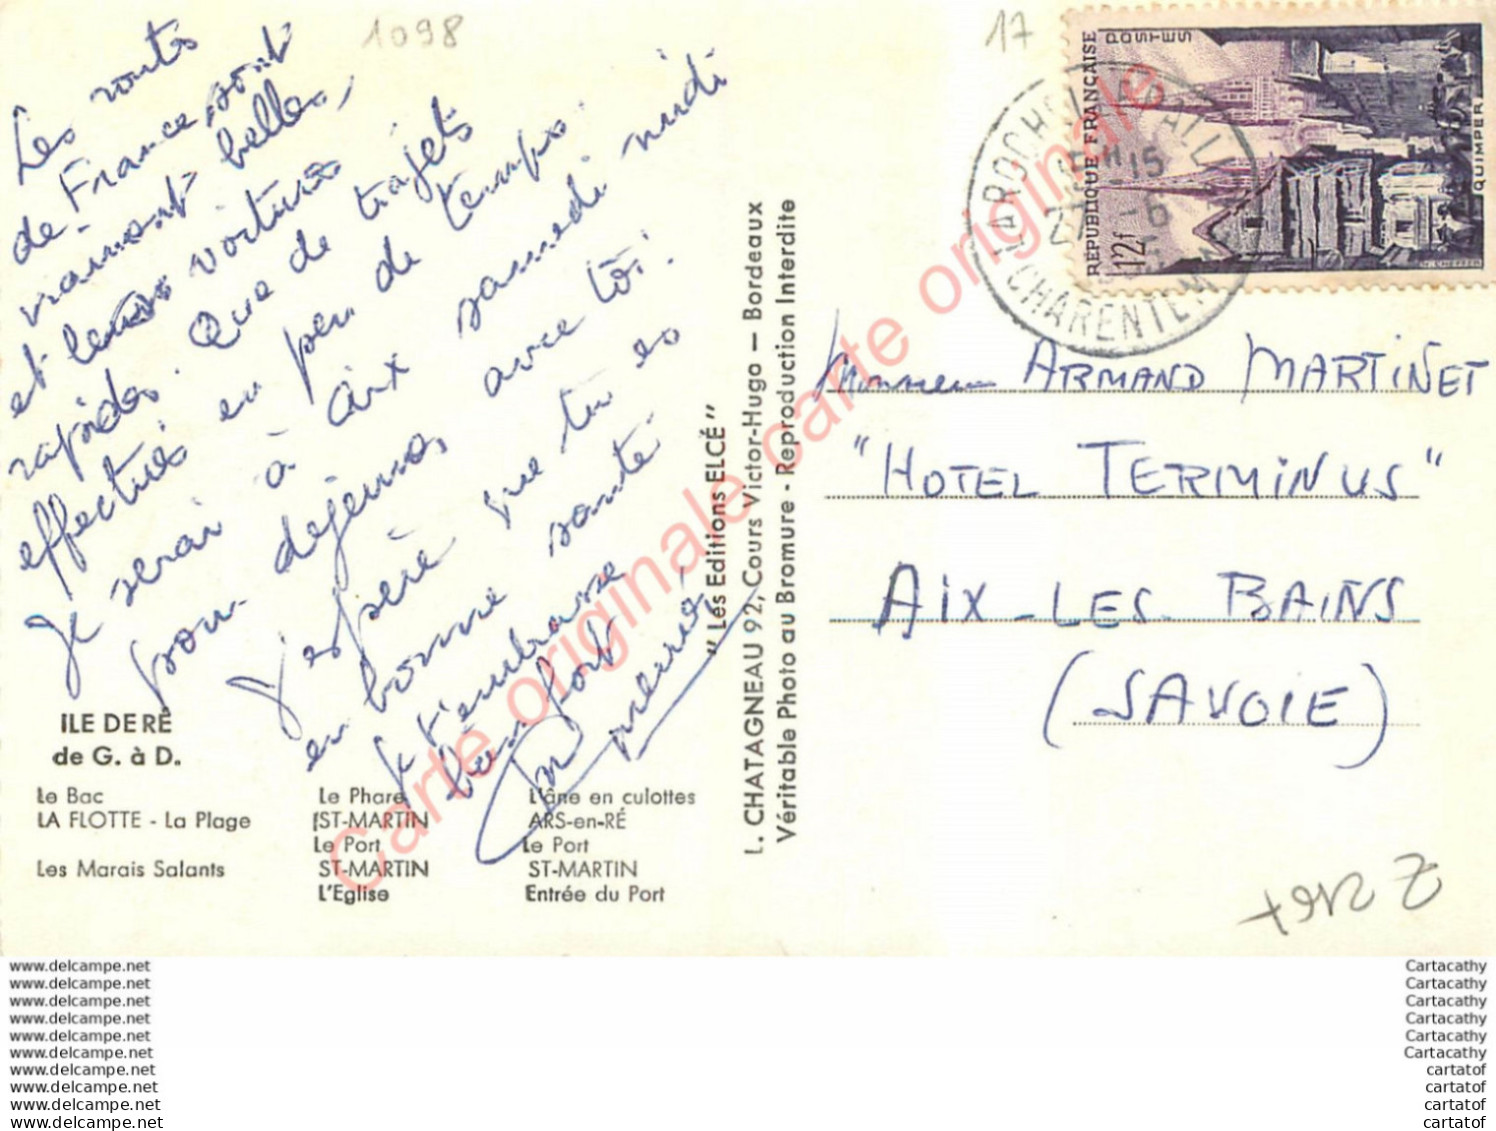 1098
17
Les routes
de France sont
vraiment belles,
et leurs voitures
rapides. Que de trajets
effectués en peu de temps.
Je serai à Aix samedi midi
pour déjeuner avec toi.
J'espère que tu es
en bonne santé
Je t'embrasse
bien fort
ILE DE RÉ
de G. à D.
Le Bac
LA FLOTTE - La Plage
Les Marais Salants
Le Phare
ST-MARTIN
Le Port
ST-MARTIN
L'Eglise
L'âne en culottes
ARS-en-RÉ
Le Port
ST-MARTIN
Entrée du Port
"Les Editions ELCÉ"
L. CHATAGNEAU 92, Cours Victor-Hugo — Bordeaux
Véritable Photo au Bromure - Reproduction Interdite
Carte originale carte originale
REPUBLIQUE FRANÇAISE
POSTES
12f
QUIMPER
LA ROCHELLE LA PALLICE
-6
CHARENTE Mme
Monsieur ARMAND MARTINET
"HOTEL TERMINUS"
AIX-LES BAINS
(SAVOIE)
www.delcampe.net
www.delcampe.net
www.delcampe.net
www.delcampe.net
www.delcampe.net
www.delcampe.net
www.delcampe.net
www.delcampe.net
www.delcampe.net
www.delcampe.net
Cartacathy
Cartacathy
Cartacathy
Cartacathy
Cartacathy
Cartacathy
cartatof
cartatof
cartatof
cartatof